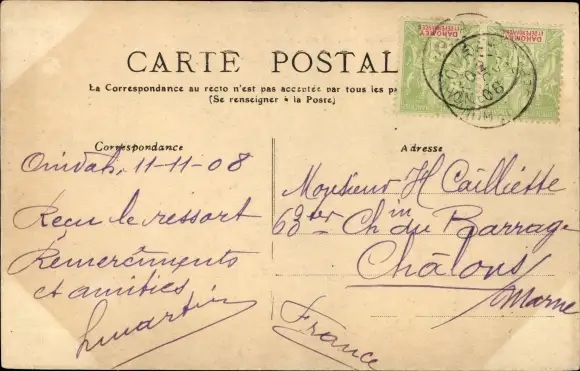 CARTE POSTAL
La Correspondance au recto n'est pas acceptée par tous les pa
(Se renseigner à la Poste)
DAHOMEY
ET DÉPENDANCES
DAHOMEY
ET DÉPENDANCES
Correspondance
Ouidah, 11-11-08
Reçu le ressort
Remerciments
et amitiés
Lmartin
Adresse
Monsieur H Cailliette
63 ter Ch in du Barrage
Châlons
Marne
France